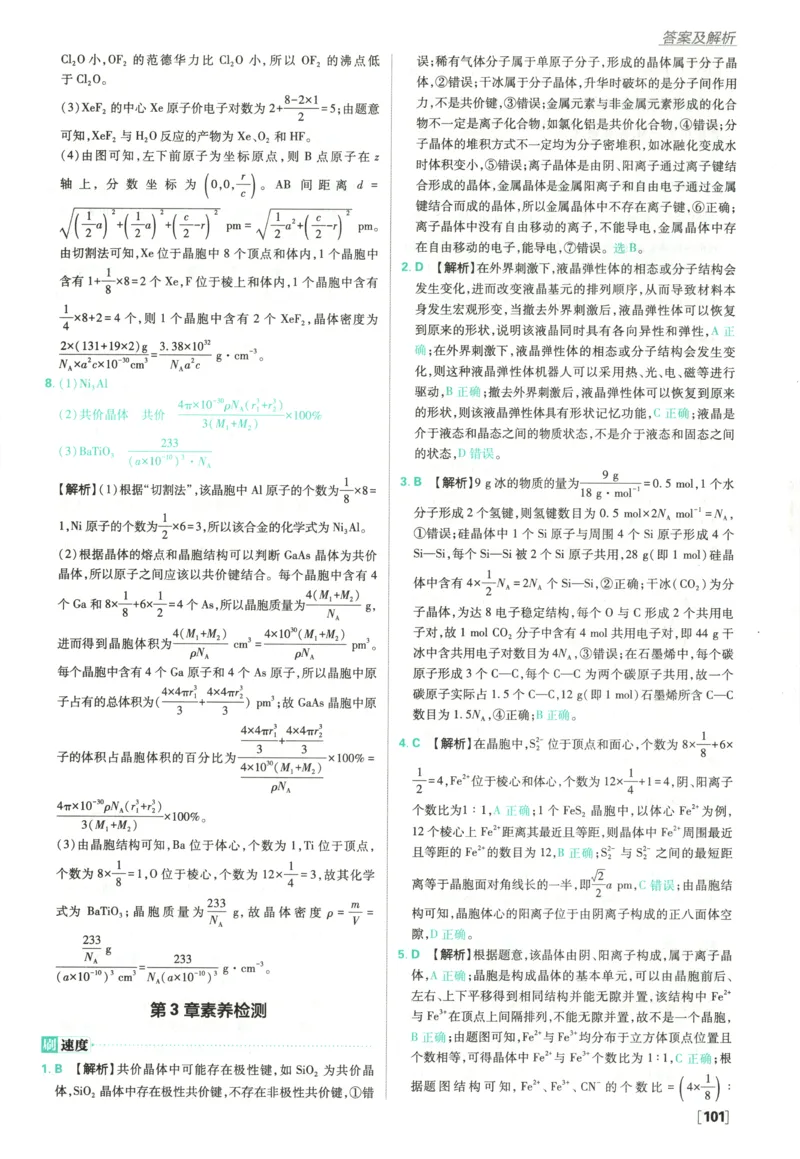 答案及解析
Cl₂O小,OF₂ 的范德华力比 Cl₂O 小,所以 OF₂ 的沸点低
于Cl₂O。
(3)XeF₂ 的中心 Xe 原子价电子对数为 2+\frac{8-2×1}{2}=5;由题意
可知,XeF₂ 与 H₂O 反应的产物为 Xe、O₂ 和 HF。
(4)由图可知,左下前原子为坐标原点,则 B 点原子在 z
轴上,分数坐标为 (0,0,\frac{r}{c})。AB 间距离 d =
\sqrt{(\frac{1}{2}a)^2+(\frac{1}{2}a)^2+(\frac{c}{2}-r)^2} pm=\sqrt{\frac{1}{2}a^2+(\frac{c}{2}-r)^2} pm。
由切割法可知,Xe位于晶胞中 8 个顶点和体内,1 个晶胞中
含有 1+\frac{1}{8}×8=2 个 Xe,F 位于棱上和体内,1 个晶胞中含有
\frac{1}{4}×8+2=4 个,则 1 个晶胞中含有 2 个 XeF₂,晶体密度为
\frac{2×(131+19×2)g}{N_A×a²c×10⁻³⁰cm³}=\frac{3.38×10³²}{N_Aa²c} g·cm⁻³。
8. (1)Ni₃Al
(2)共价晶体 共价 \frac{4π×10⁻³⁰ρN_A(r₁³+r₂³)}{3(M₁+M₂)}×100%
(3)BaTiO₃ \frac{233}{(a×10⁻¹⁰)³·N_A}
【解析】(1)根据“切割法”,该晶胞中 Al 原子的个数为\frac{1}{8}×8=
1,Ni 原子的个数为\frac{1}{2}×6=3,所以该合金的化学式为 Ni₃Al。
(2)根据晶体的熔点和晶胞结构可以判断 GaAs 晶体为共价
晶体,所以原子之间应该以共价键结合。每个晶胞中含有 4
个 Ga 和 8×\frac{1}{8}+6×\frac{1}{2}=4 个 As,所以晶胞质量为\frac{4(M₁+M₂)}{N_A} g,
进而得到晶胞体积为\frac{4(M₁+M₂)}{ρN_A} cm³=\frac{4×10³⁰(M₁+M₂)}{ρN_A} pm³。
每个晶胞中含有 4 个 Ga 原子和 4 个 As 原子,所以晶胞中原
子占有的总体积为(\frac{4×4πr₁³}{3}+\frac{4×4πr₂³}{3}) pm³;故 GaAs 晶胞中原
子的体积占晶胞体积的百分比为\frac{\frac{4×4πr₁³}{3}+\frac{4×4πr₂³}{3}}{\frac{4×10³⁰(M₁+M₂)}{ρN_A}}×100%=
\frac{4π×10⁻³⁰ρN_A(r₁³+r₂³)}{3(M₁+M₂)}×100%。
(3)由晶胞结构可知,Ba 位于体心,个数为 1,Ti 位于顶点,
个数为 8×\frac{1}{8}=1,O 位于棱心,个数为 12×\frac{1}{4}=3,故其化学
式为 BaTiO₃;晶胞质量为\frac{233}{N_A} g,故晶体密度 ρ=\frac{m}{V}=
\frac{\frac{233}{N_A} g}{(a×10⁻¹⁰)³ cm³}=\frac{233}{N_A(a×10⁻¹⁰)³} g·cm⁻³。
第 3 章素养检测
刷 速度
1. B 【解析】共价晶体中可能存在极性键,如 SiO₂ 为共价晶
体,SiO₂ 晶体中存在极性共价键,不存在非极性共价键,①错
误;稀有气体分子属于单原子分子,形成的晶体属于分子晶
体,②错误;干冰属于分子晶体,升华时破坏的是分子间作用
力,不是共价键,③错误;金属元素与非金属元素形成的化合
物不一定是离子化合物,如氯化铝是共价化合物,④错误;分
子晶体的堆积方式不一定均为分子密堆积,如冰融化变成水
时体积变小,⑤错误;离子晶体是由阴、阳离子通过离子键结
合形成的晶体,金属晶体是金属阳离子和自由电子通过金属
键结合而成的晶体,所以金属晶体中不存在离子键,⑥正确;
离子晶体中没有自由移动的离子,不能导电,金属晶体中存
在自由移动的电子,能导电,⑦错误。选 B。
2. D 【解析】在外界刺激下,液晶弹性体的相态或分子结构会
发生变化,进而改变液晶基元的排列顺序,从而导致材料本
身发生宏观形变,当撤去外界刺激后,液晶弹性体可以恢复
到原来的形状,说明该液晶同时具有各向异性和弹性,A 正
确;在外界刺激下,液晶弹性体的相态或分子结构会发生变
化,则这种液晶弹性体机器人可以采用热、光、电、磁等进行
驱动,B 正确;撤去外界刺激后,液晶弹性体可以恢复到原来
的形状,则该液晶弹性体具有形状记忆功能,C 正确;液晶是
介于液态和晶态之间的物质状态,不是介于液态和固态之间
的状态,D 错误。
3. B 【解析】9 g 冰的物质的量为\frac{9 g}{18 g·mol⁻¹}=0.5 mol,1 个水
分子形成 2 个氢键,则氢键数目为 0.5 mol×2N_A mol⁻¹=N_A,
①错误;硅晶体中 1 个 Si 原子与周围 4 个 Si 原子形成 4 个
Si—Si,每个 Si—Si 被 2 个 Si 原子共用,28 g(即 1 mol)硅晶
体中含有 4×\frac{1}{2}N_A=2N_A 个 Si—Si,②正确;干冰(CO₂)为分
子晶体,为达 8 电子稳定结构,每个 O 与 C 形成 2 个共用电
子对,故 1 mol CO₂ 分子中含有 4 mol 共用电子对,即 44 g 干
冰中含共用电子对数目为 4N_A,③错误;在石墨烯中,每个碳
原子形成 3 个 C—C,每个 C—C 为两个碳原子共用,故一个
碳原子实际占 1.5 个 C—C,12 g(即 1 mol)石墨烯所含 C—C
数目为 1.5N_A,④正确;B 正确。
4. C 【解析】在晶胞中,S₂²⁻ 位于顶点和面心,个数为 8×\frac{1}{8}+6×
\frac{1}{2}=4,Fe²⁺位于棱心和体心,个数为 12×\frac{1}{4}+1=4,阴、阳离子
个数比为1∶1,A 正确;1 个 FeS₂ 晶胞中,以体心 Fe²⁺为例,
12 个棱心上 Fe²⁺距离其最近且等距,则晶体中 Fe²⁺周围最近
且等距的 Fe²⁺的数目为 12,B 正确;S₂²⁻ 与 S₂²⁻ 之间的最短距
离等于晶胞面对角线长的一半,即\frac{\sqrt{2}}{2}a pm,C 错误;由晶胞结
构可知,晶胞体心的阳离子位于由阴离子构成的正八面体空
隙,D 正确。
5. D 【解析】根据题意,该晶体由阴、阳离子构成,属于离子晶
体,A 正确;晶胞是构成晶体的基本单元,可以由晶胞前后、
左右、上下平移得到相同结构并能无隙并置,该结构中 Fe²⁺
与 Fe³⁺在顶点上间隔排列,不能无隙并置,故不是一个晶胞,
B 正确;由题图可知,Fe²⁺与 Fe³⁺均分布于立方体顶点位置且
个数相等,可得晶体中 Fe²⁺与 Fe³⁺个数比为 1∶1,C 正确;根
据题图结构可知,Fe²⁺、Fe³⁺、CN⁻ 的个数比=(4×\frac{1}{8})∶
[101]